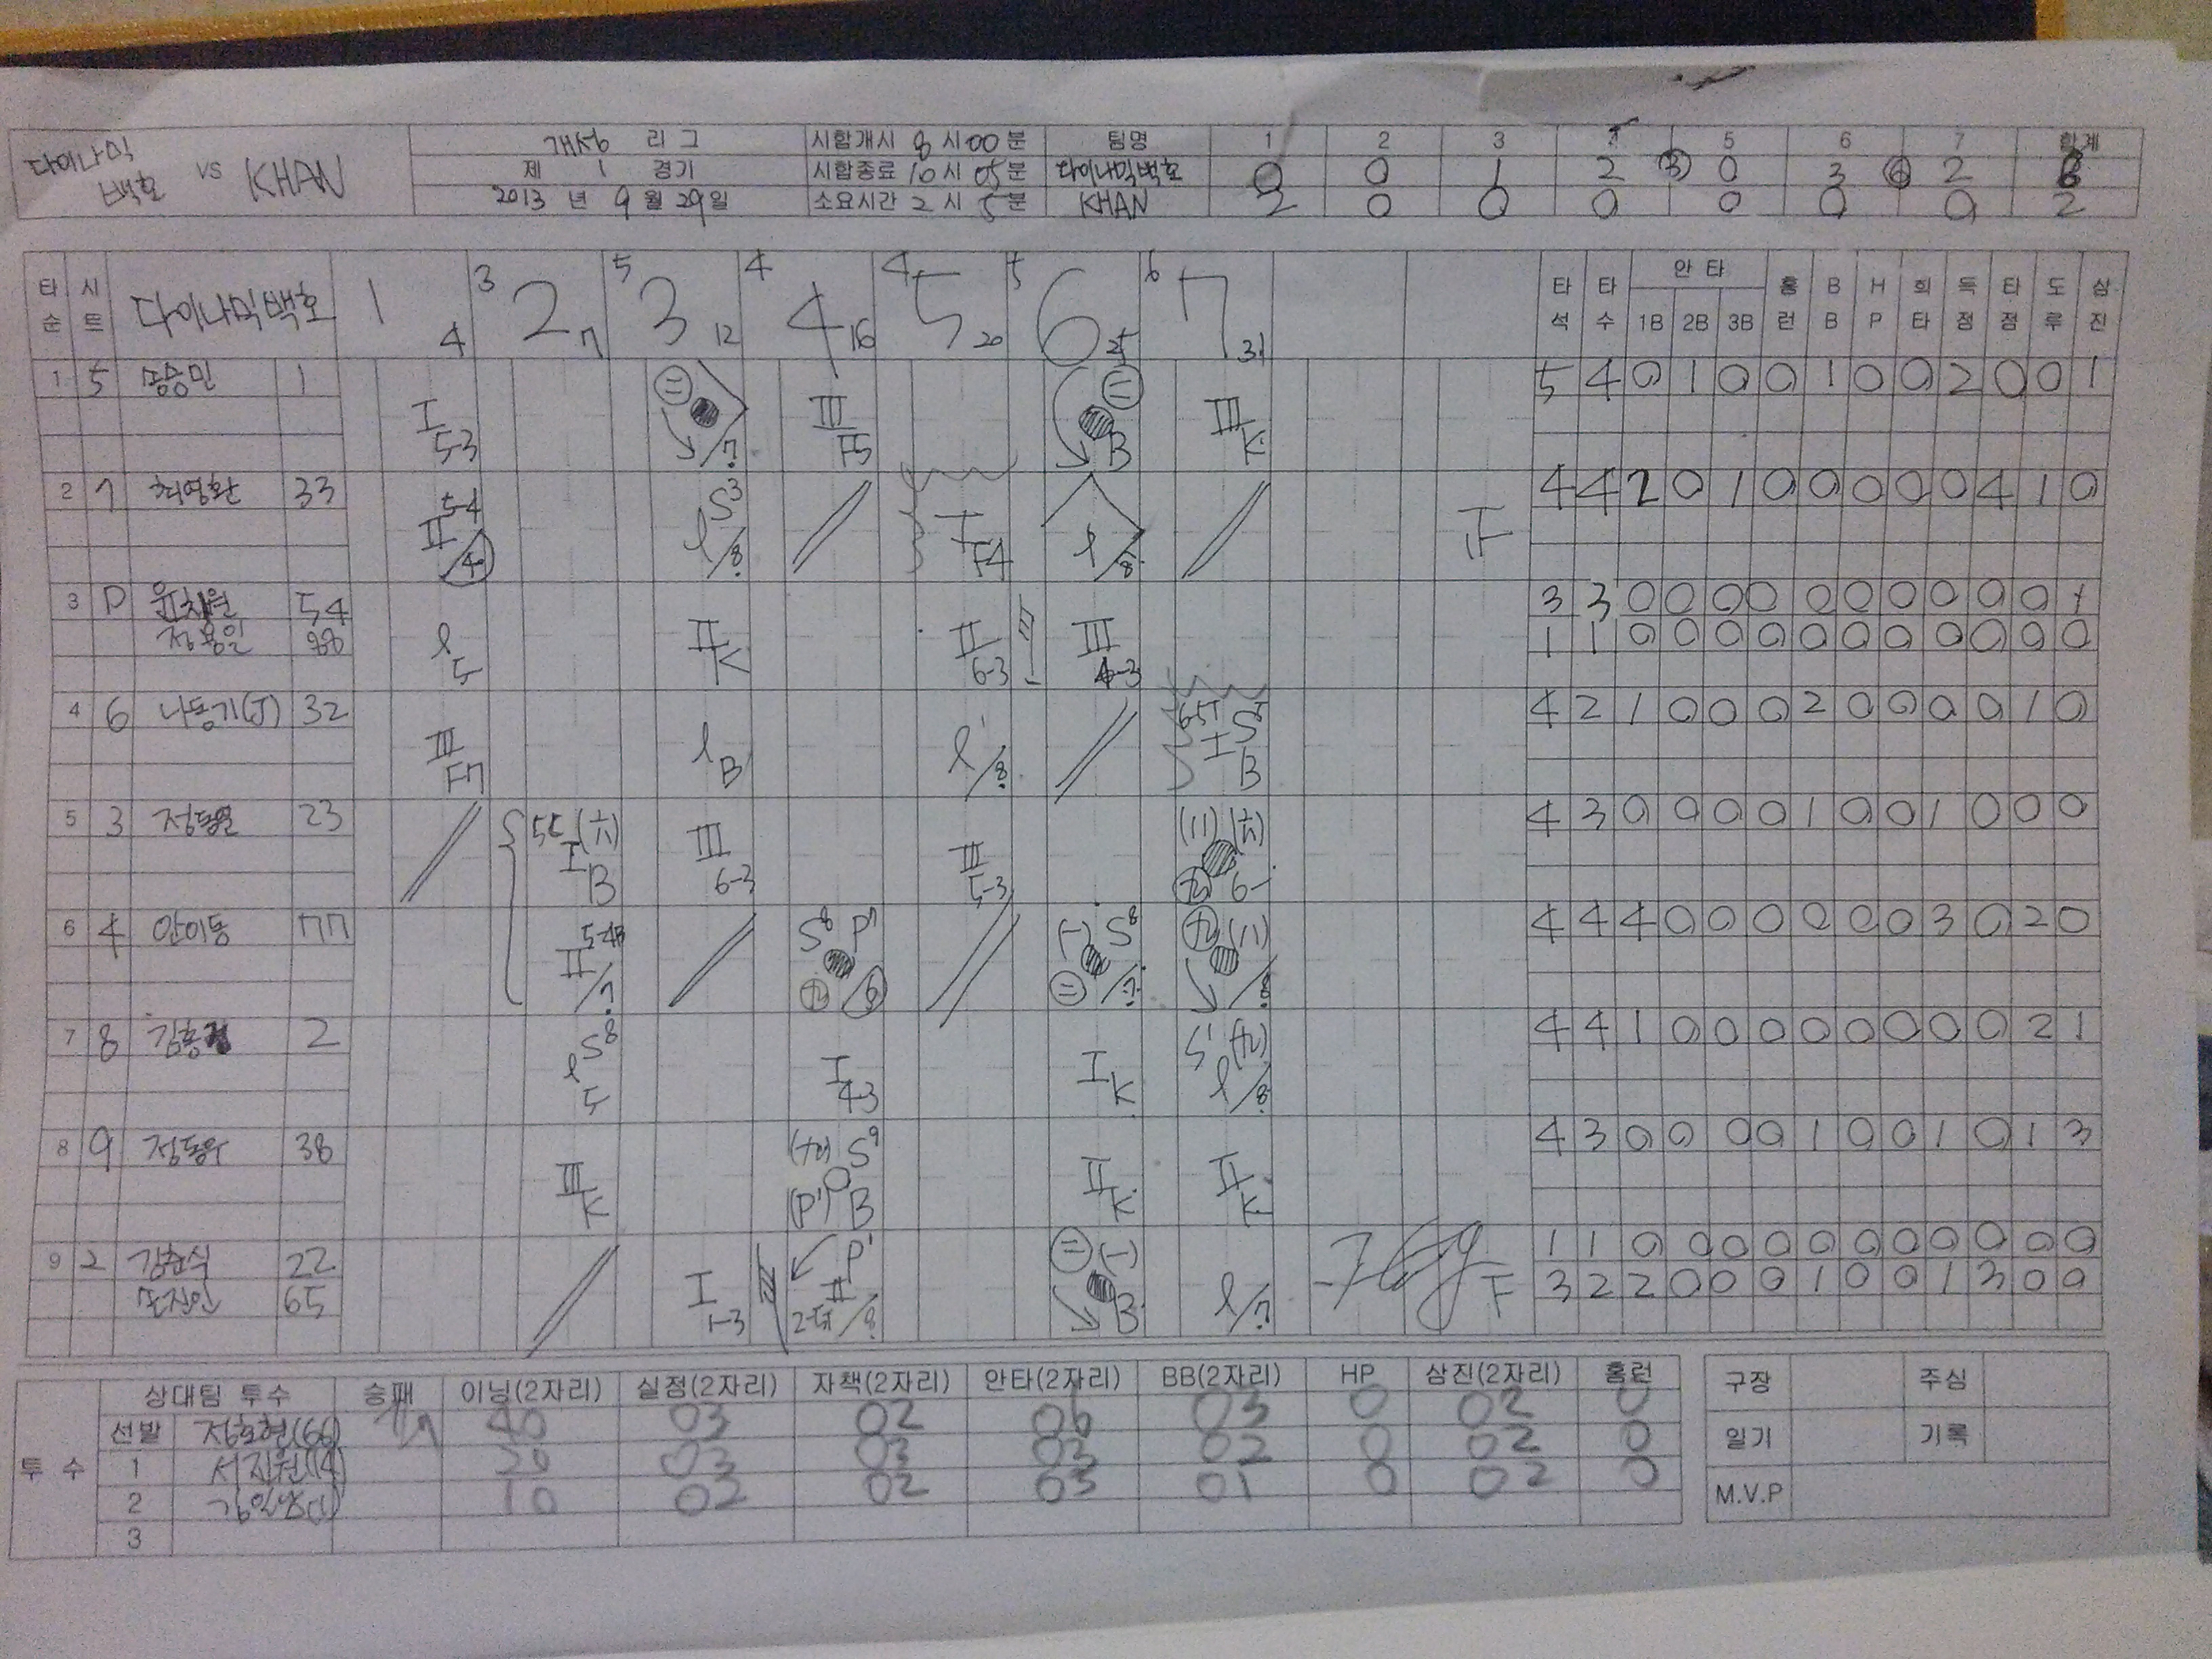 다이나믹 백호 VS KHAN
개성 리그
제 1 경기
2013 년 9 월 29 일
시합개시 8 시 00 분
시합종료 10 시 05 분
소요시간 2 시 5 분
팀명 1 2 3 4 5 6 7 합계
다이나믹백호 0 0 1 2 ③ 0 3 ⑥ 2 8
KHAN 2 0 0 0 0 0 0 2
타순 시트 다이나믹백호 1 4 3 2 7 5 3 12 4 4 16 4 5 20 5 6 25 6 7 31
타석 타수 안타 1B 2B 3B 홈런 BB HP 희타 득점 타점 도루 삼진
1 5 송승민 1 I 5-3 /7 III F5 B III K 5 4 0 1 0 0 1 0 0 2 0 0 1
2 7 최영환 33 5-4 II /4 S3 /8 I F4 /8 4 4 2 0 1 0 0 0 0 0 4 1 0
3 D 54 5 II K II 6-3 III 4-3 3 3 0 0 0 0 0 0 0 0 0 0 1
정용일 88 1 1 0 0 0 0 0 0 0 0 0 0 0
4 6 나동기(J) 32 III F7 B /8 I B 4 2 1 0 0 0 2 0 0 0 0 1 0
5 3 23 I B III 6-3 III 5-3 6- 4 3 0 0 0 0 1 0 0 1 0 0 0
6 4 안이동 77 II /7 S8 P7 /6 S8 /7 /8 4 4 4 0 0 0 0 0 0 3 0 2 0
7 8 2 S8 5 I 4-3 I K S1 /8 4 4 1 0 0 0 0 0 0 0 0 2 1
8 9 정동우 38 III K S9 (P1) B II K II K 4 3 0 0 0 0 1 0 0 1 0 1 3
9 2 김춘식 22 I 1-3 P1 /8 B /7 1 1 0 0 0 0 0 0 0 0 0 0 0
65 3 2 2 0 0 0 1 0 0 1 3 0 0
투수 상대팀 투수 승패 이닝(2자리) 실점(2자리) 자책(2자리) 안타(2자리) BB(2자리) HP 삼진(2자리) 홈런
선발 정호현(66) 패 40 03 02 06 03 0 02 0
1 서지원(14) 20 03 03 03 02 0 02 0
2 10 02 02 03 01 0 02 0
3
구장 주심
일기 기록
M.V.P